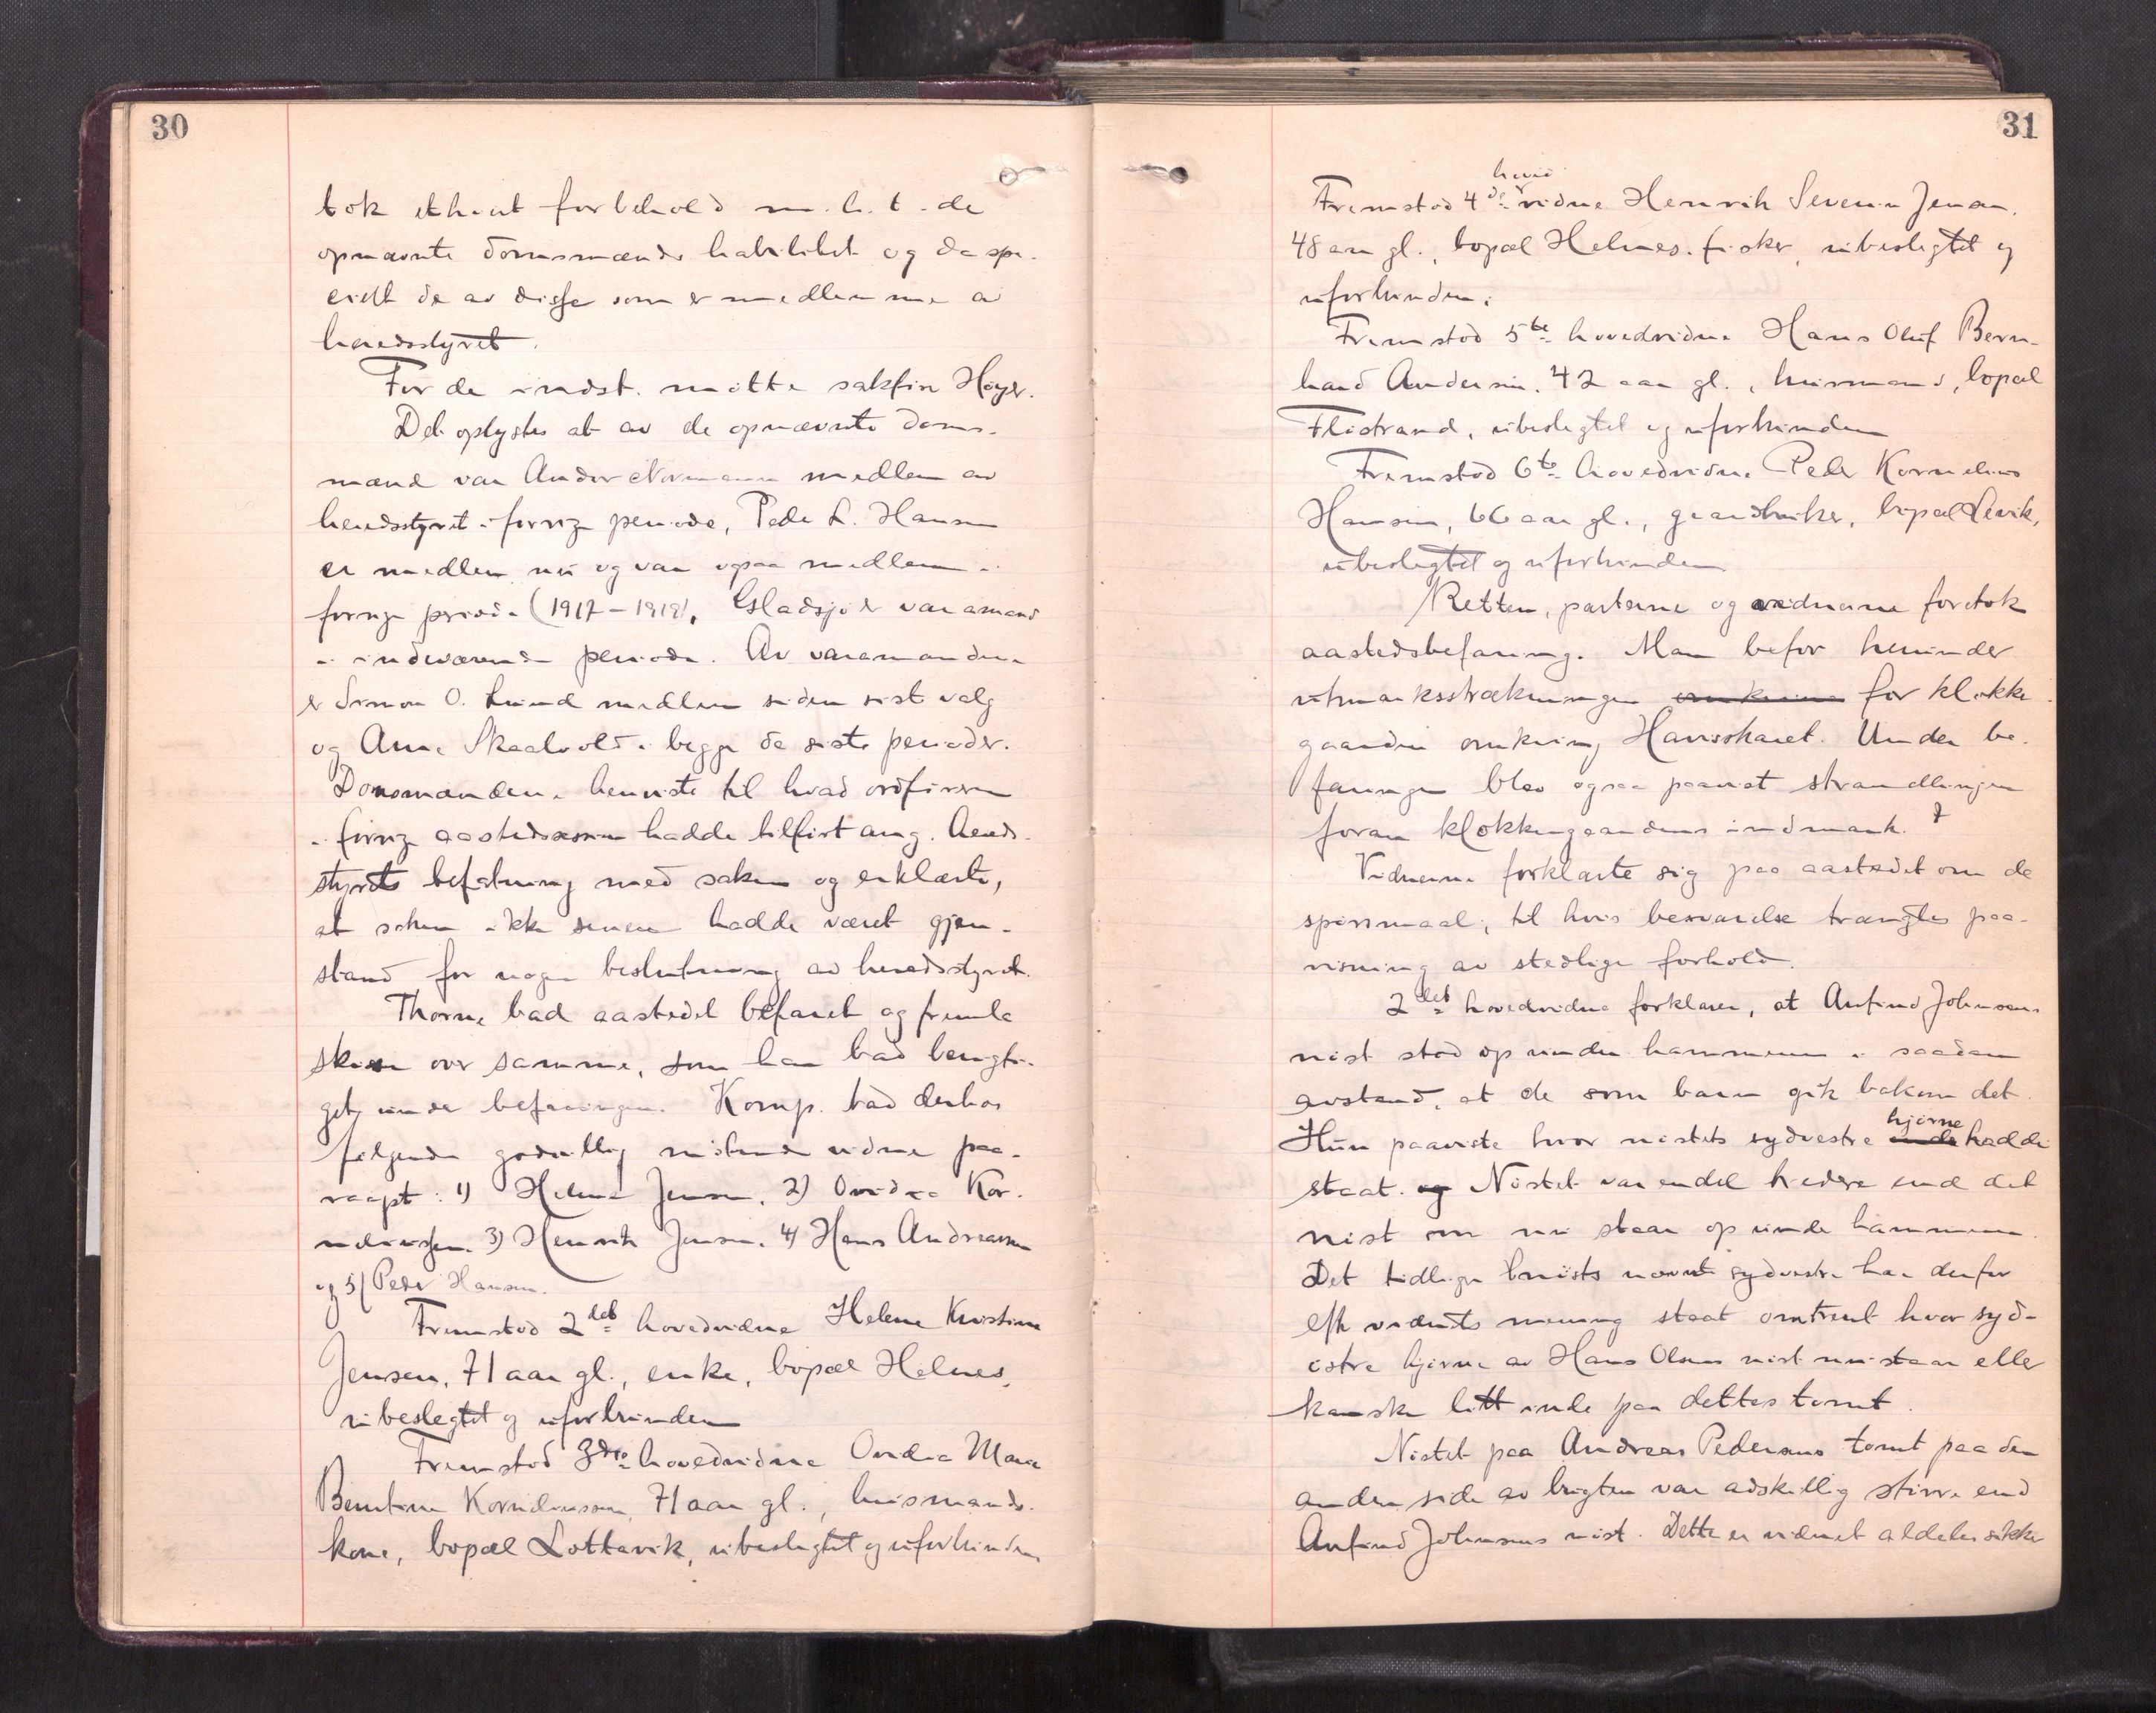 30
tok ethvert forbehold m. h. t. de
opnævnte domsmænds habilitet og da spe-
cielt de av disse som er medlemmer av
heredsstyret.
For de indst. møtte sakfører Høyer.
Det oplystes at av de opnævnte doms-
mænd var Andor Normann medlem av
heredsstyret i forrige periode, Peder L. Hansen
er medlem nu og var ogsaa medlem i
forrige periode (1917-1919). Gladsjø er varamand
i indeværende periode. Av varamændene
er Simon O. Lund medlem siden sist valg
og Arne Skaalvold i begge de siste perioder.
Domsmændene henviste til hvad ordføreren
i forrige aastedssesion hadde tilført ang. hereds-
styrets befatning med saken og erklærte,
at saken ikke senere hadde været gjen-
stand for nogen beslutning av heredsstyret.
Thorne bad aastedet befaret og fremla
skisse over samme, som han bad benyt-
get under befaringen. Komp. bad derhos
følgende godvillig møtende vidner paa-
raapt: 1) Helene Jensen, 2) Ovidia Kor-
neliussen. 3) Henrik Jensen. 4) Hans Andreassen
og 5) Peder Hansen.
Fremstod 2det hovedvidne Helene Kristine
Jensen, 71 aar gl., enke, bopæl Helnes,
ubeslegtet og uforbunden
Fremstod 3dje hovedvidne Ovidia Maria
Berntine Korneliussen, 71 aar gl., husmands-
kone, bopæl Lottavik, ubeslegtet og uforbunden
31
hoved
Fremstod 4de vidne Henrik Severin Jensen.
48 aar gl., bopæl Helnes. fisker, ubeslegtet og
uforbunden.
Fremstod 5te hovedvidne Hans Oluf Bern-
hard Andersen, 42 aar gl., husmand, bopæl
Flistrand, ubeslegtet og uforbunden
Fremstod 6te hovedvidne Peder Kornelius
Hansen, 66 aar gl., gaardbruker, bopæl Levik,
ubeslegtet og uforbunden
Retten, parterne og vidnerne foretok
aastedsbefaring. Man befor herunder
utmarksstrækningen omkring for klokker-
gaarden omkring Havnskaret. Under be-
faringen blev ogsaa paavist strandlinjen
foran klokkergaardens indmark.
Vidnerne forklarte sig paa aastedet om de
spørsmaal, til hvis besvarelse trængtes paa-
visning av stedlige forhold.
2det hovedvidne forklarer, at Anfind Johnsens
nøst stod op under hammeren i saadan
avstand, at de som barn gik bakom det.
hjørne
Hun paaviste hvor nøstets sydvestre ende hadde
staat. og Nøstet var endel bredere end det
nøst som nu staar op under hammeren.
Det tidligere nøsts nævnte sydvestre har derfor
efter vidnets mening staat omtrent hvor syd-
østre hjørne av Hans Olsens nøst nu staar eller
kanske litt inde paa dettes tomt.
Nøstet paa Andreas Pedersens tomt paa den
anden side av brygten var adskillig større end
Anfind Johnsens nøst. Dette er vidnet aldeles sikker